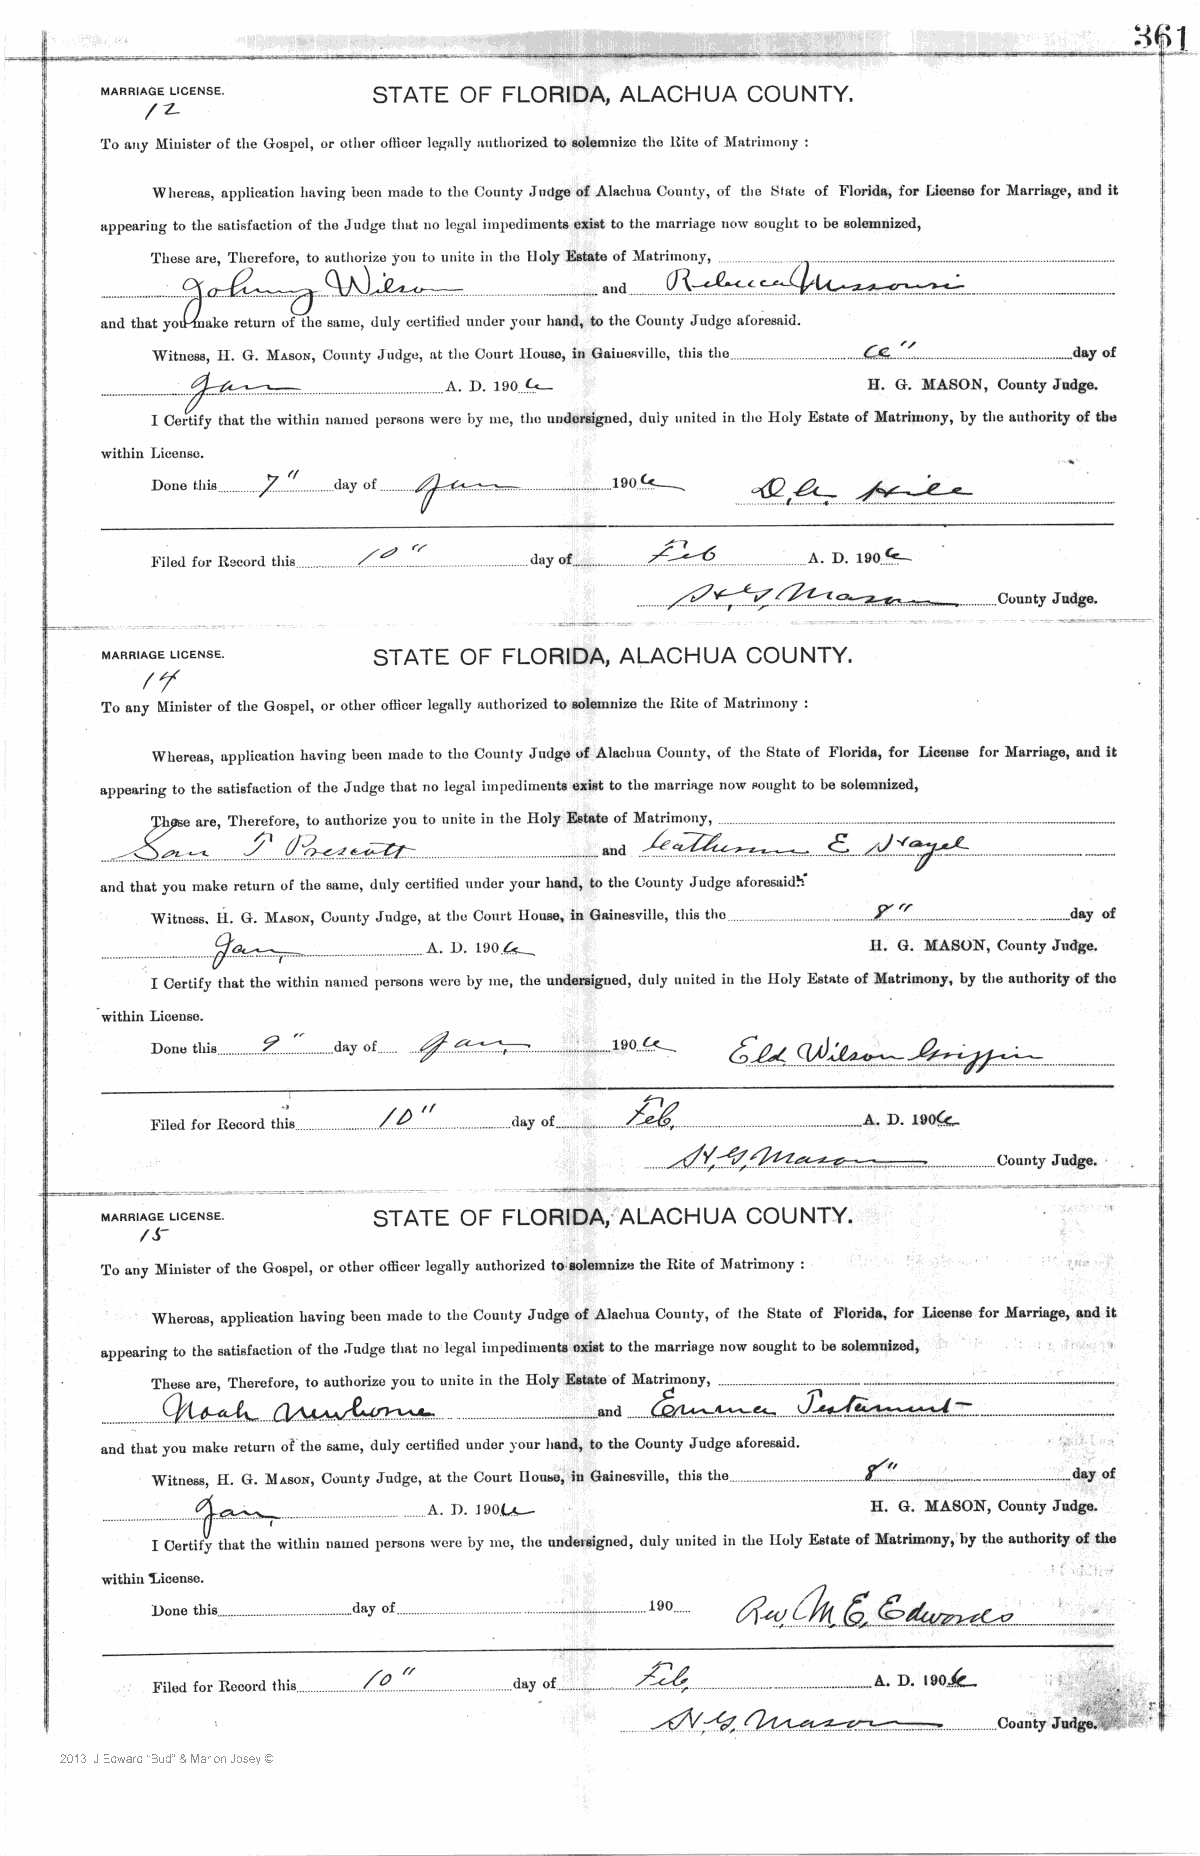 361
MARRIAGE LICENSE.
STATE OF FLORIDA, ALACHUA COUNTY.
12
To any Minister of the Gospel, or other officer legally authorized to solemnize the Rite of Matrimony :
Whereas, application having been made to the County Judge of Alachua County, of the State of Florida, for License for Marriage, and it
appearing to the satisfaction of the Judge that no legal impediments exist to the marriage now sought to be solemnized,
These are, Therefore, to authorize you to unite in the Holy Estate of Matrimony,
Johnny Wilson and Rebecca Missouri
and that you make return of the same, duly certified under your hand, to the County Judge aforesaid.
Witness, H. G. MASON, County Judge, at the Court House, in Gainesville, this the 6" day of
Jan A. D. 1906 H. G. MASON, County Judge.
I Certify that the within named persons were by me, the undersigned, duly united in the Holy Estate of Matrimony, by the authority of the
within License.
Done this 7" day of Jan 1906 D. A. Hill
Filed for Record this 10" day of Feb A. D. 1906
H. G. Mason County Judge.
MARRIAGE LICENSE.
STATE OF FLORIDA, ALACHUA COUNTY.
14
To any Minister of the Gospel, or other officer legally authorized to solemnize the Rite of Matrimony :
Whereas, application having been made to the County Judge of Alachua County, of the State of Florida, for License for Marriage, and it
appearing to the satisfaction of the Judge that no legal impediments exist to the marriage now sought to be solemnized,
These are, Therefore, to authorize you to unite in the Holy Estate of Matrimony,
Sam T Prescott and E
and that you make return of the same, duly certified under your hand, to the County Judge aforesaid.
Witness, H. G. MASON, County Judge, at the Court House, in Gainesville, this the 8" day of
Jan, A. D. 1906 H. G. MASON, County Judge.
I Certify that the within named persons were by me, the undersigned, duly united in the Holy Estate of Matrimony, by the authority of the
within License.
Done this 9" day of Jan, 1906 Eld Wilson Griffin
Filed for Record this 10" day of Feb, A. D. 1906
H. G. Mason County Judge.
MARRIAGE LICENSE.
STATE OF FLORIDA, ALACHUA COUNTY.
15
To any Minister of the Gospel, or other officer legally authorized to solemnize the Rite of Matrimony :
Whereas, application having been made to the County Judge of Alachua County, of the State of Florida, for License for Marriage, and it
appearing to the satisfaction of the Judge that no legal impediments exist to the marriage now sought to be solemnized,
These are, Therefore, to authorize you to unite in the Holy Estate of Matrimony,
Noah Newhome and Emma Testament
and that you make return of the same, duly certified under your hand, to the County Judge aforesaid.
Witness, H. G. MASON, County Judge, at the Court House, in Gainesville, this the 8" day of
Jan, A. D. 1906 H. G. MASON, County Judge.
I Certify that the within named persons were by me, the undersigned, duly united in the Holy Estate of Matrimony, by the authority of the
within License.
Done this day of 190 Rev, M. E. Edwards
Filed for Record this 10" day of Feb, A. D. 1906
H. G. Mason County Judge.
2013 J Edward "Bud" & Marion Josey ©